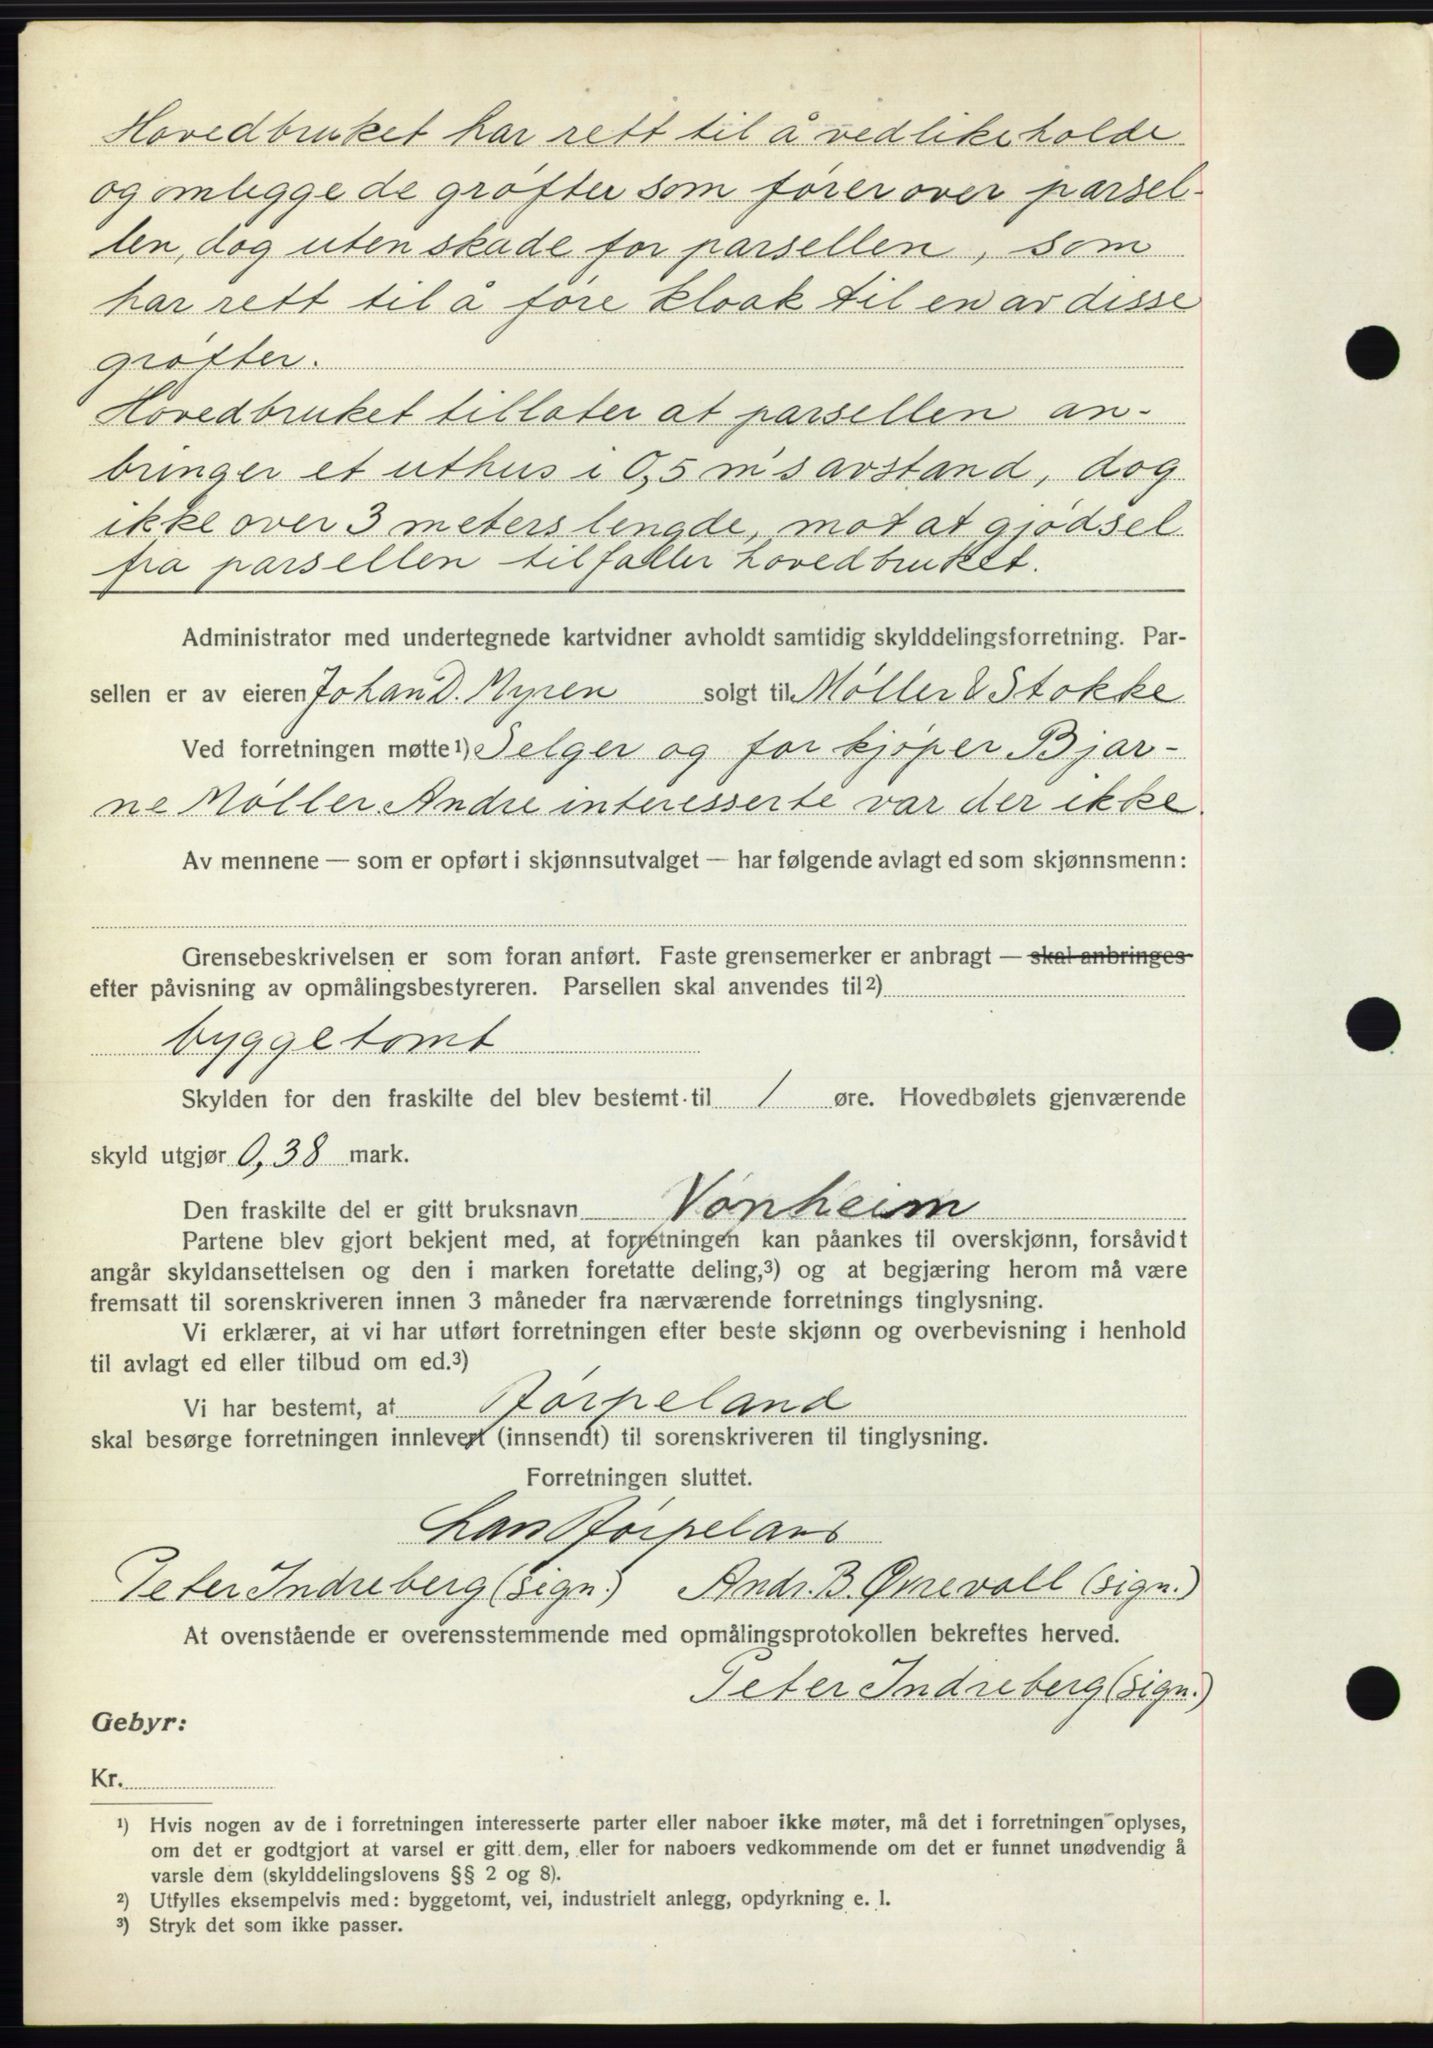 Hovedbruket har rett til å vedlikeholde
og omlegge de grøfter som fører over parsel-
len, dog uten skade for parsellen, som
har rett til å føre kloak til en av disse
grøfter.
Hovedbruket tillater at parsellen an-
bringer et uthus i 0,5 m's avstand, dog
ikke over 3 meters lengde, mot at gjødsel
fra parsellen tilfaller hovedbruket.
Administrator med undertegnede kartvidner avholdt samtidig skylddelingsforretning. Par-
sellen er av eieren Johan D. Myren solgt til Møller & Stokke
Ved forretningen møtte¹) Selger og for kjøper Bjar-
ne Møller. Andre interesserte var der ikke.
Av mennene — som er opført i skjønnsutvalget — har følgende avlagt ed som skjønnsmenn:
Grensebeskrivelsen er som foran anført. Faste grensemerker er anbragt — skal anbringes
efter påvisning av opmålingsbestyreren. Parsellen skal anvendes til²)
byggetomt
Skylden for den fraskilte del blev bestemt til 1 øre. Hovedbølets gjenværende
skyld utgjør 0,38 mark.
Den fraskilte del er gitt bruksnavn Vonheim
Partene blev gjort bekjent med, at forretningen kan påankes til overskjønn, forsåvidt
angår skyldansettelsen og den i marken foretatte deling,³) og at begjæring herom må være
fremsatt til sorenskriveren innen 3 måneder fra nærværende forretnings tinglysning.
Vi erklærer, at vi har utført forretningen efter beste skjønn og overbevisning i henhold
til avlagt ed eller tilbud om ed.³)
Vi har bestemt, at Jørpeland
skal besørge forretningen innlevert (innsendt) til sorenskriveren til tinglysning.
Forretningen sluttet.
Lars Jørpeland
Peter Indreberg (sign.) Andr. B. Øvrevoll (sign.)
At ovenstående er overensstemmende med opmålingsprotokollen bekreftes herved.
Peter Indreberg (sign.)
Gebyr:
Kr.
¹) Hvis nogen av de i forretningen interesserte parter eller naboer ikke møter, må det i forretningen oplyses,
om det er godtgjort at varsel er gitt dem, eller for naboers vedkommende om det er funnet unødvendig å
varsle dem (skylddelingslovens §§ 2 og 8).
²) Utfylles eksempelvis med: byggetomt, vei, industrielt anlegg, opdyrkning e. l.
³) Stryk det som ikke passer.